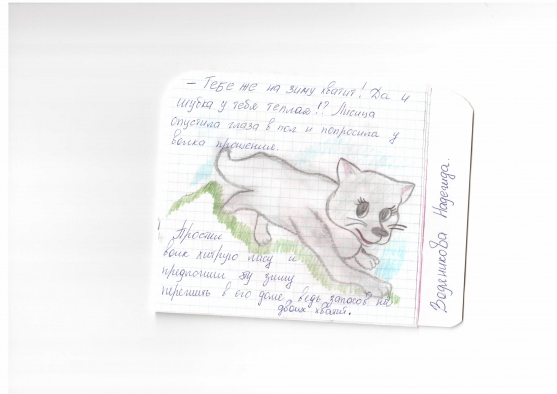 – Тебе же на зиму хватит! Да и
шубка у тебя теплая!? Лисица
опустила глаза в пол и попросила у
волка прощения.
Простил
волк хитрую лису и
предложил эту зиму
пережить в его доме, ведь запасов на
двоих хватит.
Водяникова Надежда.